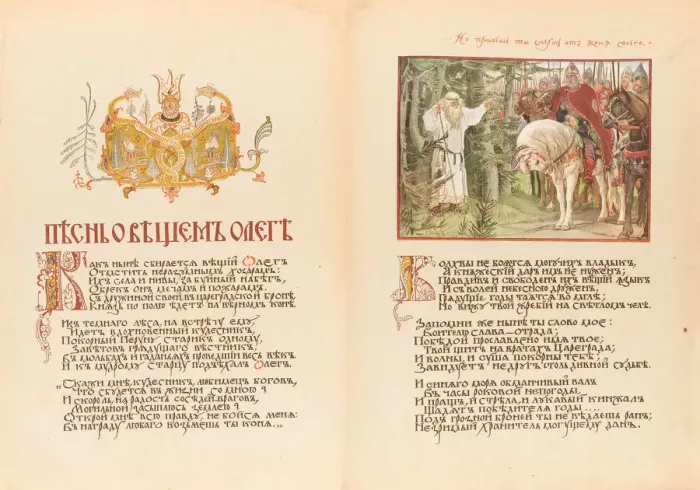 ПѢСНЬ О ВѢЩЕМЪ ОЛЕГѢ
Какъ нынѣ сбирается вѣщій Олегъ
Отмстить неразумнымъ хозарамъ:
Ихъ села и нивы, за буйный набѣгъ,
Обрекъ онъ мечамъ и пожарамъ.
Съ дружиной своей, въ цареградской бронѣ,
Князь по полю ѣдетъ на вѣрномъ конѣ.
Изъ темнаго лѣса, на встрѣчу ему,
Идетъ вдохновенный кудесникъ,
Покорный Перуну старикъ одному,
Завѣтовъ грядущаго вѣстникъ,
Въ мольбахъ и гаданьяхъ проведшій весь вѣкъ.
И къ мудрому старцу подъѣхалъ Олегъ.
„Скажи мнѣ, кудесникъ, любимецъ боговъ,
Что сбудется въ жизни со мною?
И скоро ль, на радость сосѣдей-враговъ,
Могильной засыплюсь землею?
Открой мнѣ всю правду, не бойся меня:
Въ награду любаго возьмешь ты коня„..
Но примешь ты смерть отъ коня своего.
Волхвы не боятся могучихъ владыкъ,
А княжескій даръ имъ не нуженъ;
Правдивъ и свободенъ ихъ вѣщій языкъ
И съ волей небесною друженъ.
Грядущіе годы таятся во мглѣ;
Но вижу твой жребій на свѣтломъ челѣ.
Запомни же нынѣ ты слово мое:
Воителю слава – отрада;
Побѣдой прославлено имя твое;
Твой щитъ на вратахъ Цареграда;
И волны, и суша покорны тебѣ;
Завидуетъ недругъ столь дивной судьбѣ.
И синяго моря обманчивый валъ
Въ часы роковой непогоды,
И пращъ, и стрѣла, и лукавый кинжалъ
Щадятъ побѣдителя годы....
Подъ грозной броней ты не вѣдаешь ранъ;
Незримый хранитель могущему данъ.